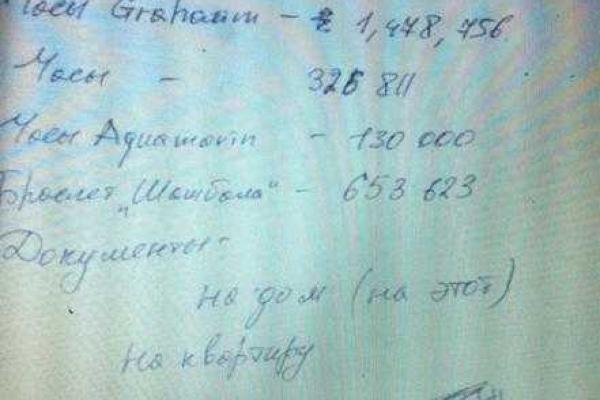 Часы Graham - 1,478,756
Часы - 326 811
Часы Aquamarin - 130 000
Браслет "Шамбала" - 653 623
Документы:
на дом (на этот)
на квартиру